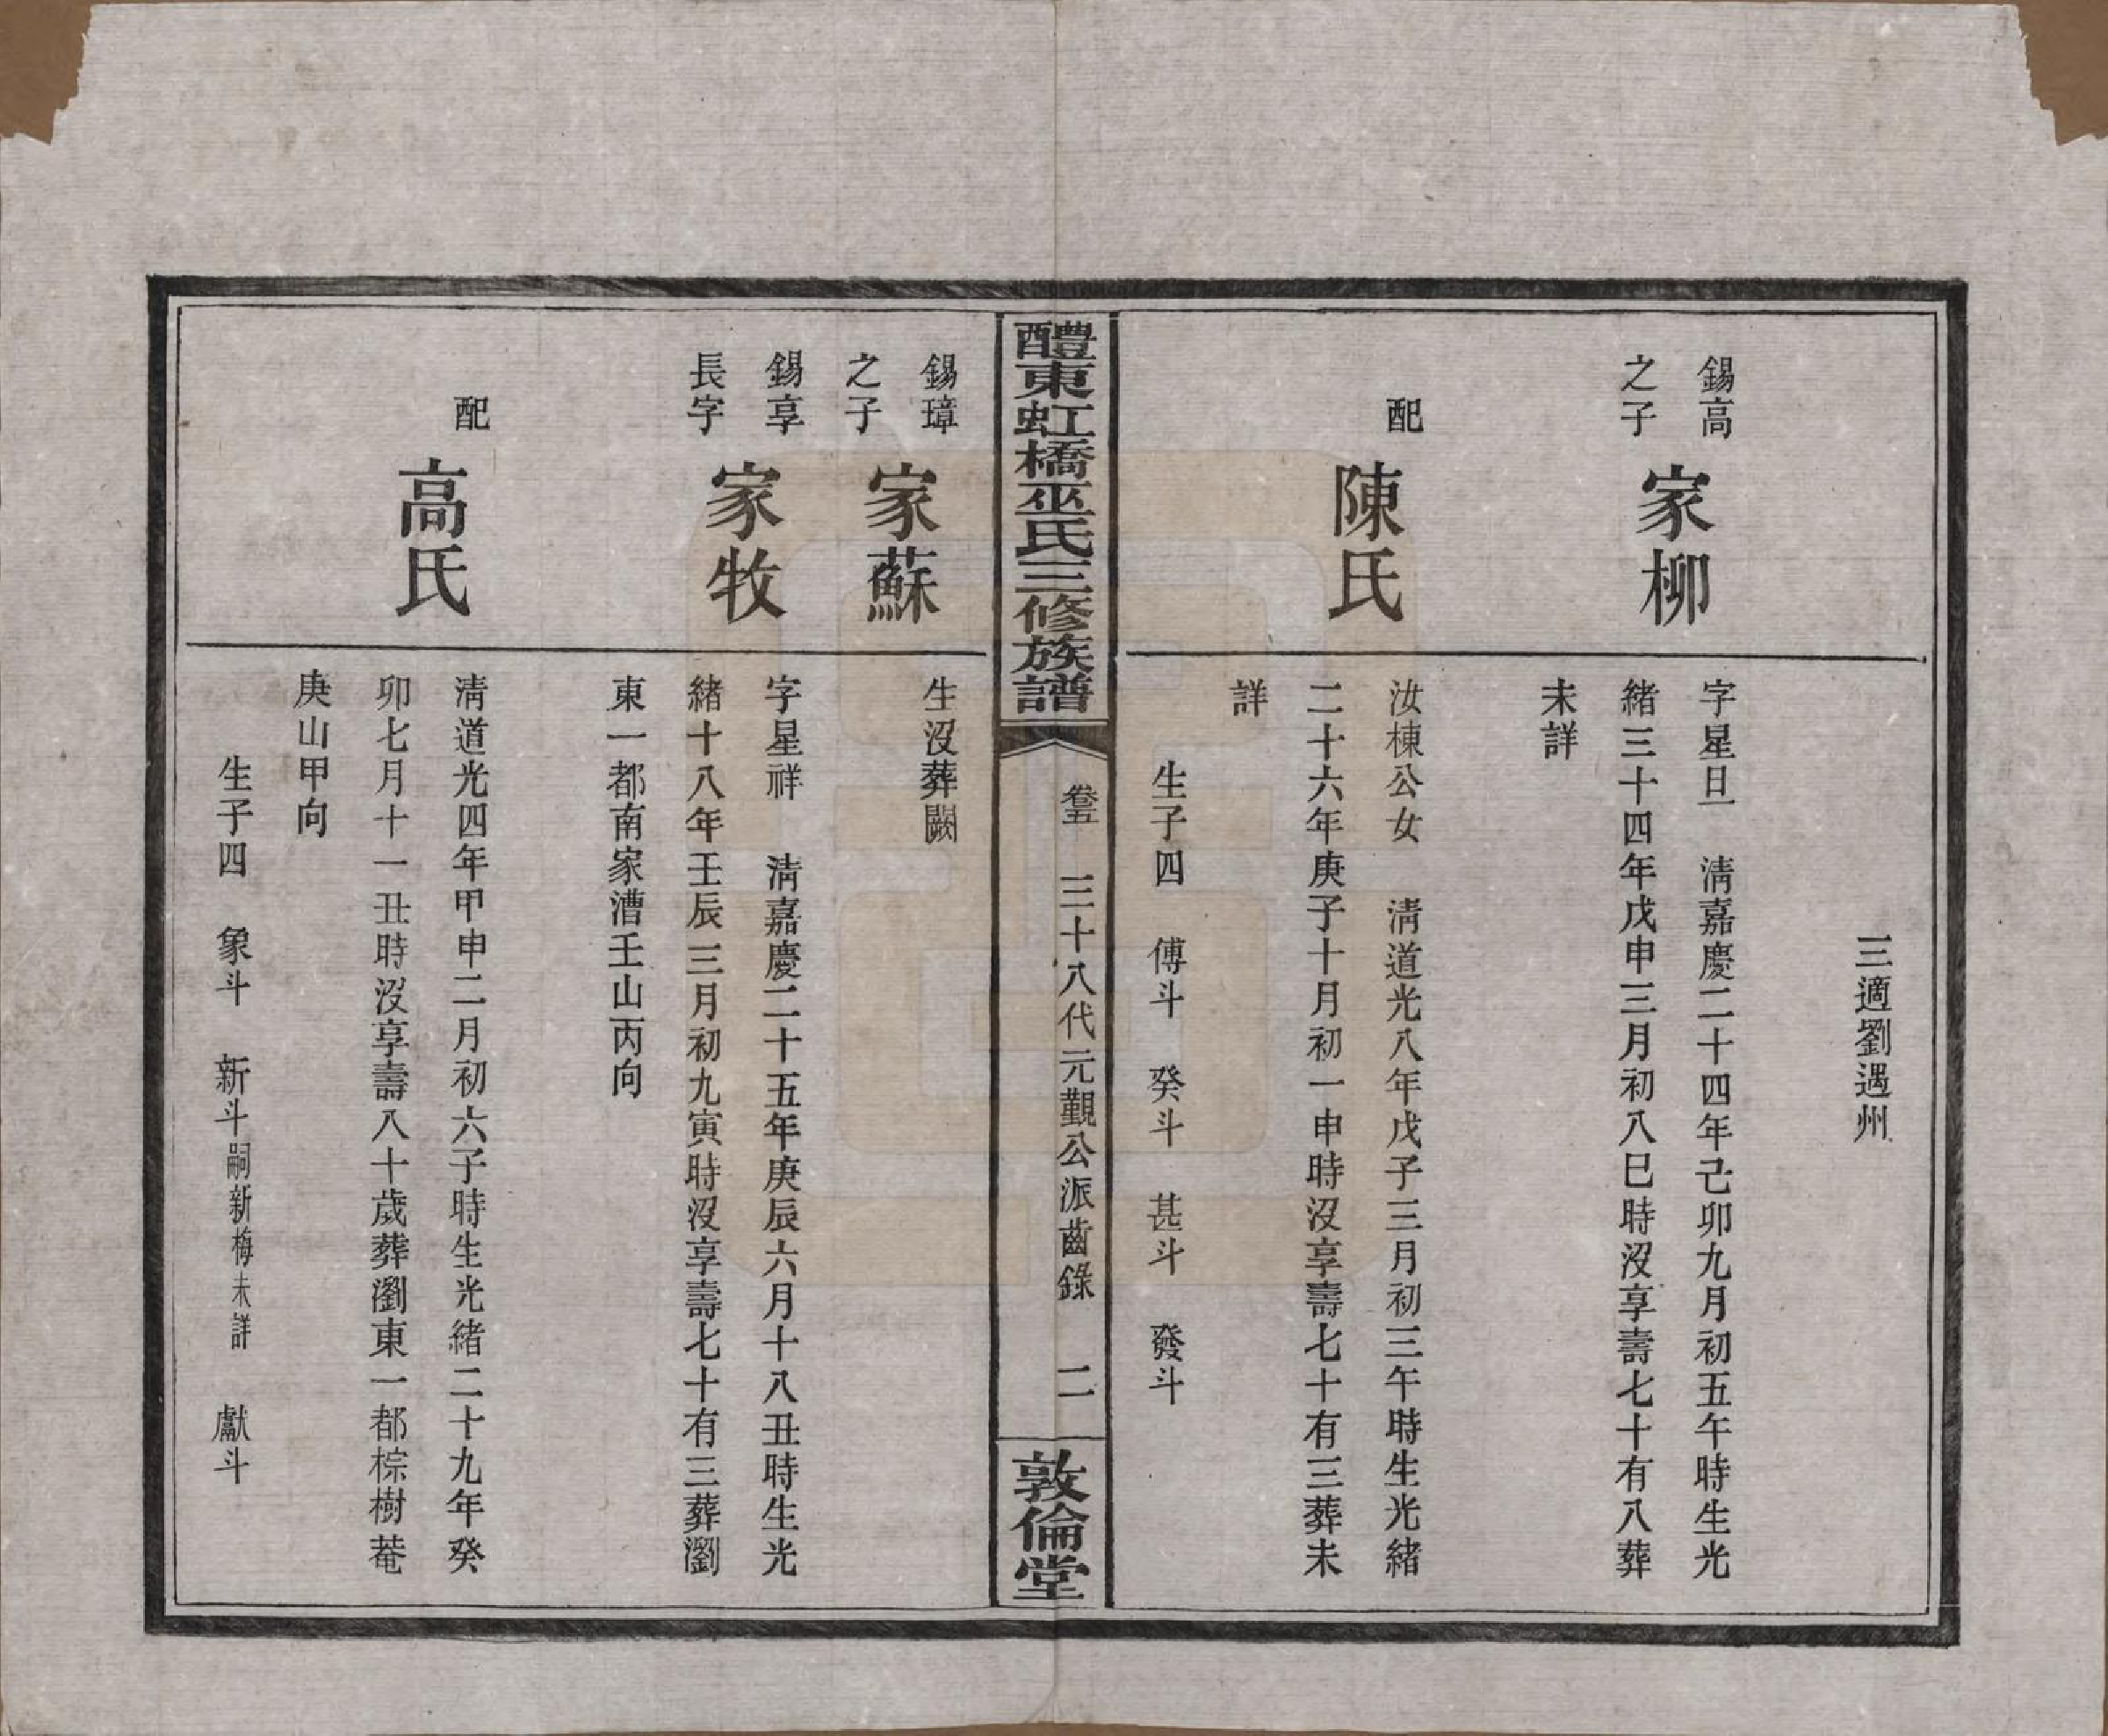 三適劉遇州
錫高
之子
家柳
字星旦　清嘉慶二十四年己卯九月初五午時生光
緒三十四年戊申三月初八巳時沒享壽七十有八葬
未詳
配
陳氏
汝棟公女　清道光八年戊子三月初三午時生光緒
二十六年庚子十月初一申時沒享壽七十有三葬未
詳
生子四　傅斗　癸斗　甚斗　發斗
醴東虹橋巫氏三修族譜
卷五　三十八代元觀公派齒錄　二
敦倫堂
錫璋
之子
家蘇
生沒葬闕
錫享
長字
家牧
字星祥　清嘉慶二十五年庚辰六月十八丑時生光
緒十八年壬辰三月初九寅時沒享壽七十有三葬瀏
東一都南家漕壬山丙向
配
高氏
清道光四年甲申二月初六子時生光緒二十九年癸
卯七月十一丑時沒享壽八十歲葬瀏東一都棕樹菴
庚山甲向
生子四　象斗　新斗嗣新梅未詳　獻斗